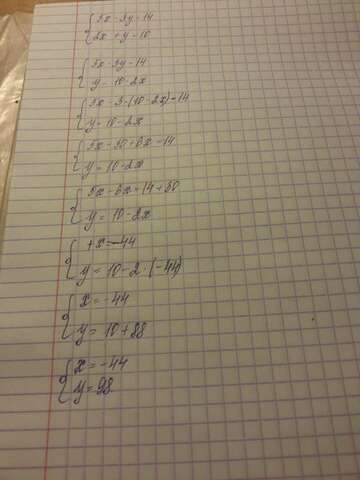 5x - 3y = 14
2x + y = 10
5x - 3y = 14
y = 10 - 2x
5x - 3·(10 - 2x) = 14
y = 10 - 2x
5x - 30 + 6x = 14
y = 10 - 2x
5x - 6x = 14 + 30
y = 10 - 2x
+x = -44
y = 10 - 2·(-44)
x = -44
y = 10 + 88
x = -44
y = 98.